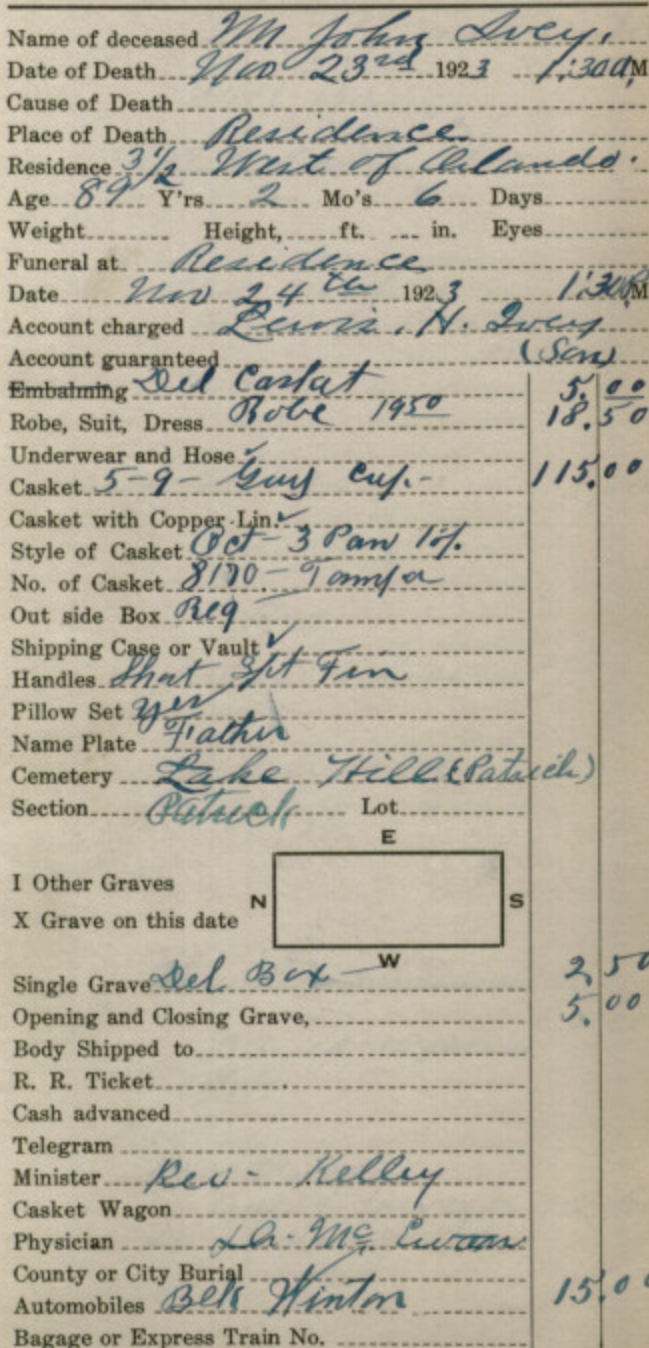 Name of deceased Mr John Ivey.
Date of Death Nov 23rd 1923 1:30 A M
Cause of Death
Place of Death Residence
Residence 3 1/2 West of Orlando.
Age 89 Y'rs 2 Mo's 6 Days
Weight Height, ft. in. Eyes
Funeral at Residence
Date Nov 24th 1923 1:30 P M
Account charged Lewis. H. Ivey
Account guaranteed (Son)
Embalming Del Casket 5.00
Robe, Suit, Dress Robe 1950 18.50
Underwear and Hose ✓
Casket 5-9- Grey 115.00
Casket with Copper Lin. ✓
Style of Casket Oct - 3 Pan
No. of Casket 8170 - Tampa
Out side Box Reg
Shipping Case or Vault ✓
Handles Short
Pillow Set yes
Name Plate Father
Cemetery Lake Hill (Patrick)
Section Patrick Lot
E
I Other Graves
N S
X Grave on this date
W
Single Grave Del Box 2.50
Opening and Closing Grave, 5.00
Body Shipped to
R. R. Ticket
Cash advanced
Telegram
Minister Rev - Kelley
Casket Wagon
Physician Dr. McEwan
County or City Burial
Automobiles Belk Hinton 15.00
Bagage or Express Train No.